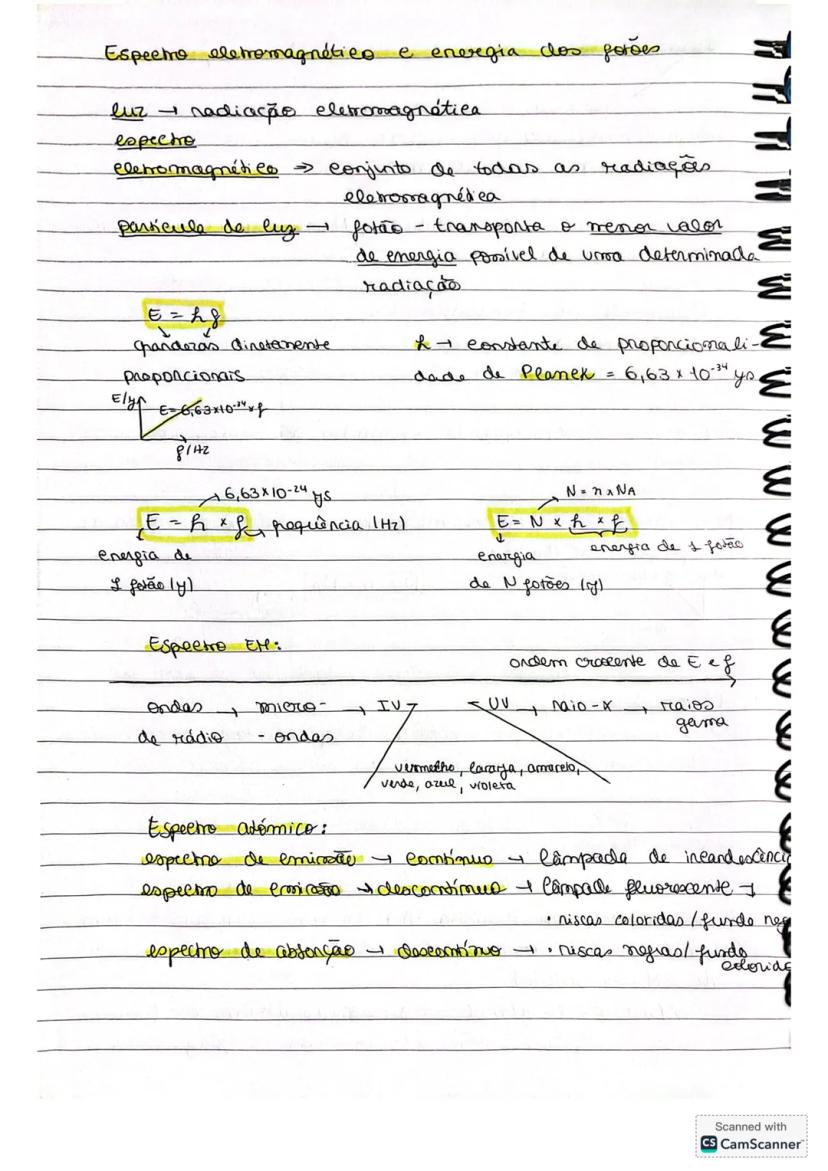 Espectro eletromagnético e energia dos fotões
luz → radiação eletromagnética
espectro
eletromagnético ⇒ conjunto de todas as radiações
eletromagnética
partícula de luz → fotão - transporta o menor valor
de energia possível de uma determinada
radiação
E = h f
grandezas diretamente
h → constante de proporcionali-
proporcionais
dade de Planck = 6,63 x 10⁻³⁴ Js
E/J
E=6,63x10⁻³⁴xf
f/Hz
6,63x10⁻²⁴ Js
N = n x NA
E = h x f → frequência (Hz)
E = N x h x f
energia de
energia
energia de 1 fotão
1 fotão (J)
de N fotões (J)
Espectro EM:
ordem crescente de E e f
ondas → micro- → IV
UV → raio-x → raios
gama
de rádio - ondas
vermelho, laranja, amarelo,
verde, azul, violeta
Espectro atómico:
espectro de emissão → contínuo → lâmpada de incandescênci
espectro de emissão → descontínuo → lâmpada fluorescente →
• riscas coloridas / fundo neg
espectro de absorção → descontínuo → • riscas negras / fundo
colorido
Scanned with
CS CamScanner